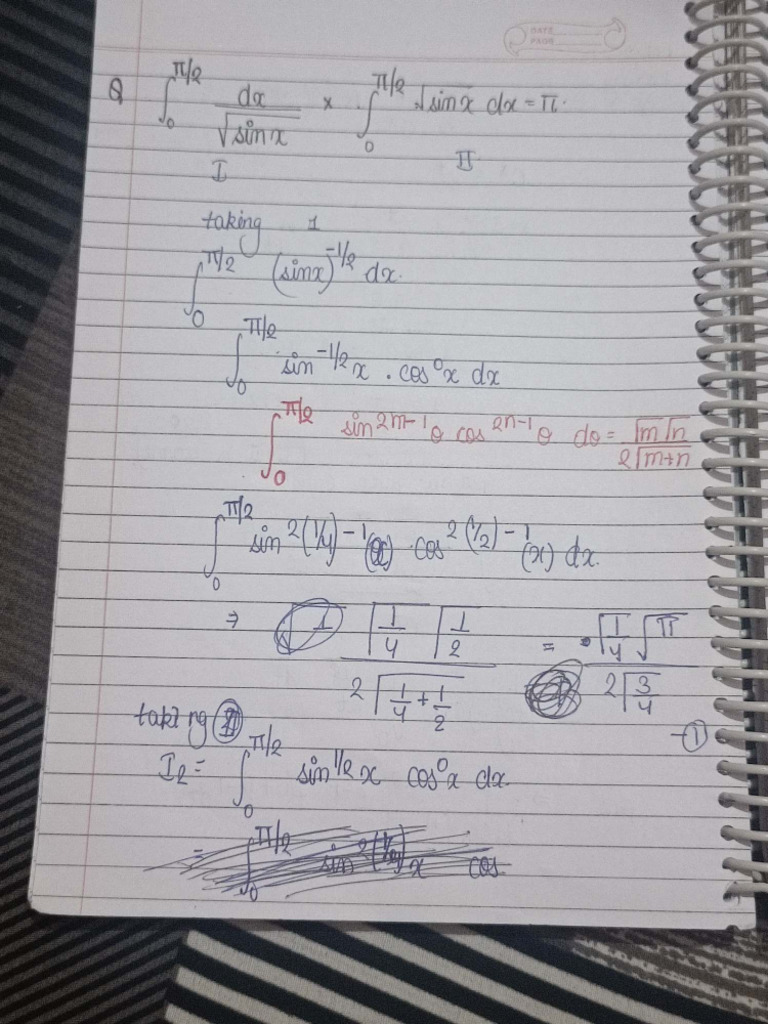 DATE
PAGE
Q ∫₀^π/2 dx/√sinx × ∫₀^π/2 √sinx dx = π.
I II
taking 1
∫₀^π/2 (sinx)^-1/2 dx.
∫₀^π/2 sin^-1/2 x . cos⁰x dx
∫₀^π/2 sin^2m-1 θ cos^2n-1 θ dθ = Γm Γn / 2Γm+n
∫₀^π/2 sin^2(1/4)-1 (x) . cos^2(1/2)-1 (x) dx.
⇒ Γ1/4 Γ1/2 / 2Γ1/4+1/2 = Γ1/4 √π / 2Γ3/4
-①
taking
I₂ = ∫₀^π/2 sin^1/2 x cos⁰x dx.
= ∫₀^π/2 sin^2 x cos